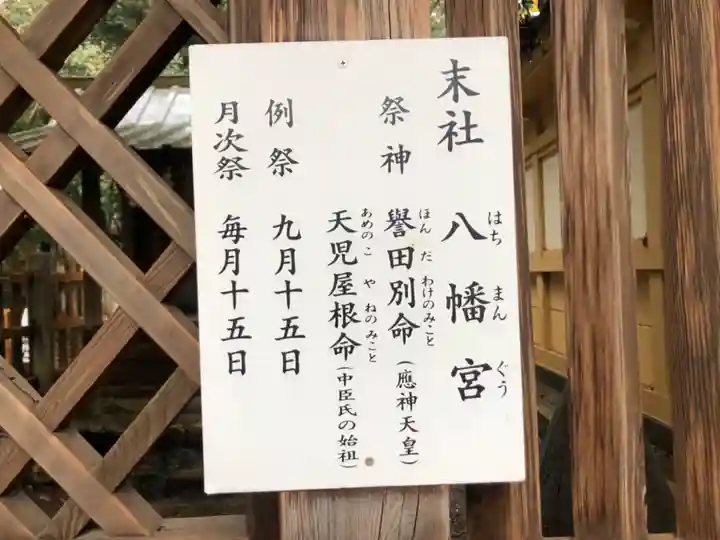 末社 八幡宮
はちまんぐう
祭神 譽田別命(應神天皇)
ほんだわけのみこと
天児屋根命(中臣氏の始祖)
あめのこやねのみこと
例祭 九月十五日
月次祭 毎月十五日